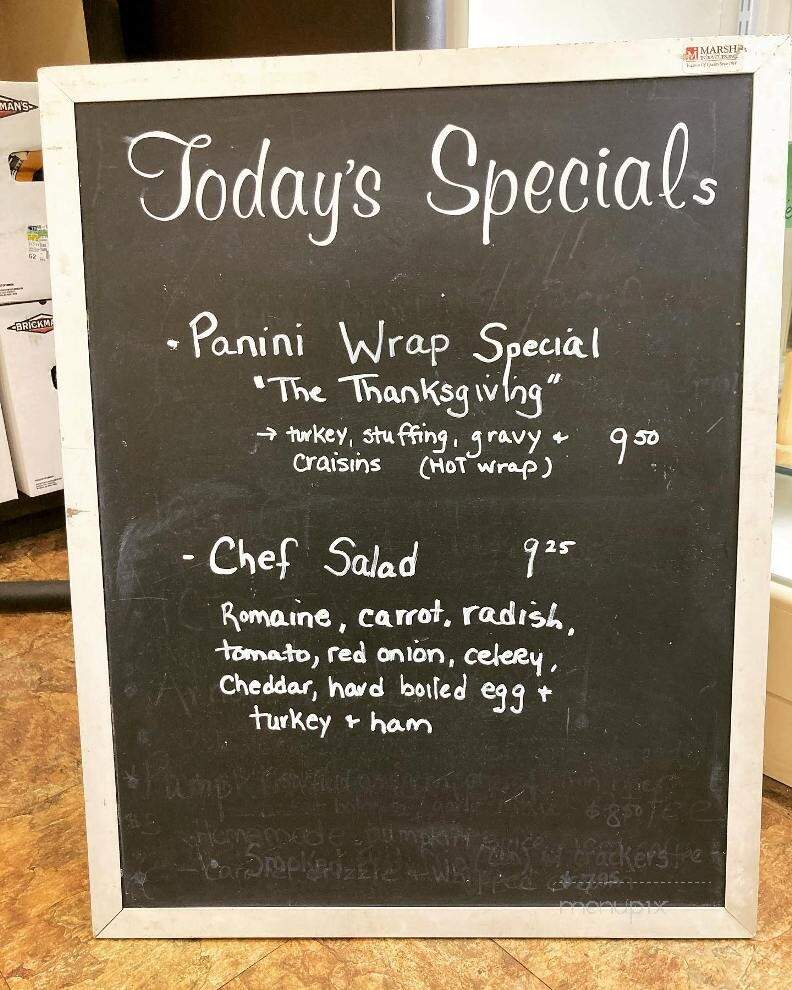 MARSH
MAN'S
Today's Specials
BRICKM
62
• Panini Wrap Special
"The Thanksgiving"
→ turkey, stuffing, gravy + 9 50
craisins (HOT wrap)
- Chef Salad 9 25
Romaine, carrot, radish,
tomato, red onion, celery,
Cheddar, hard boiled egg +
turkey + ham
Homemade pumpkin
crackers
menupix